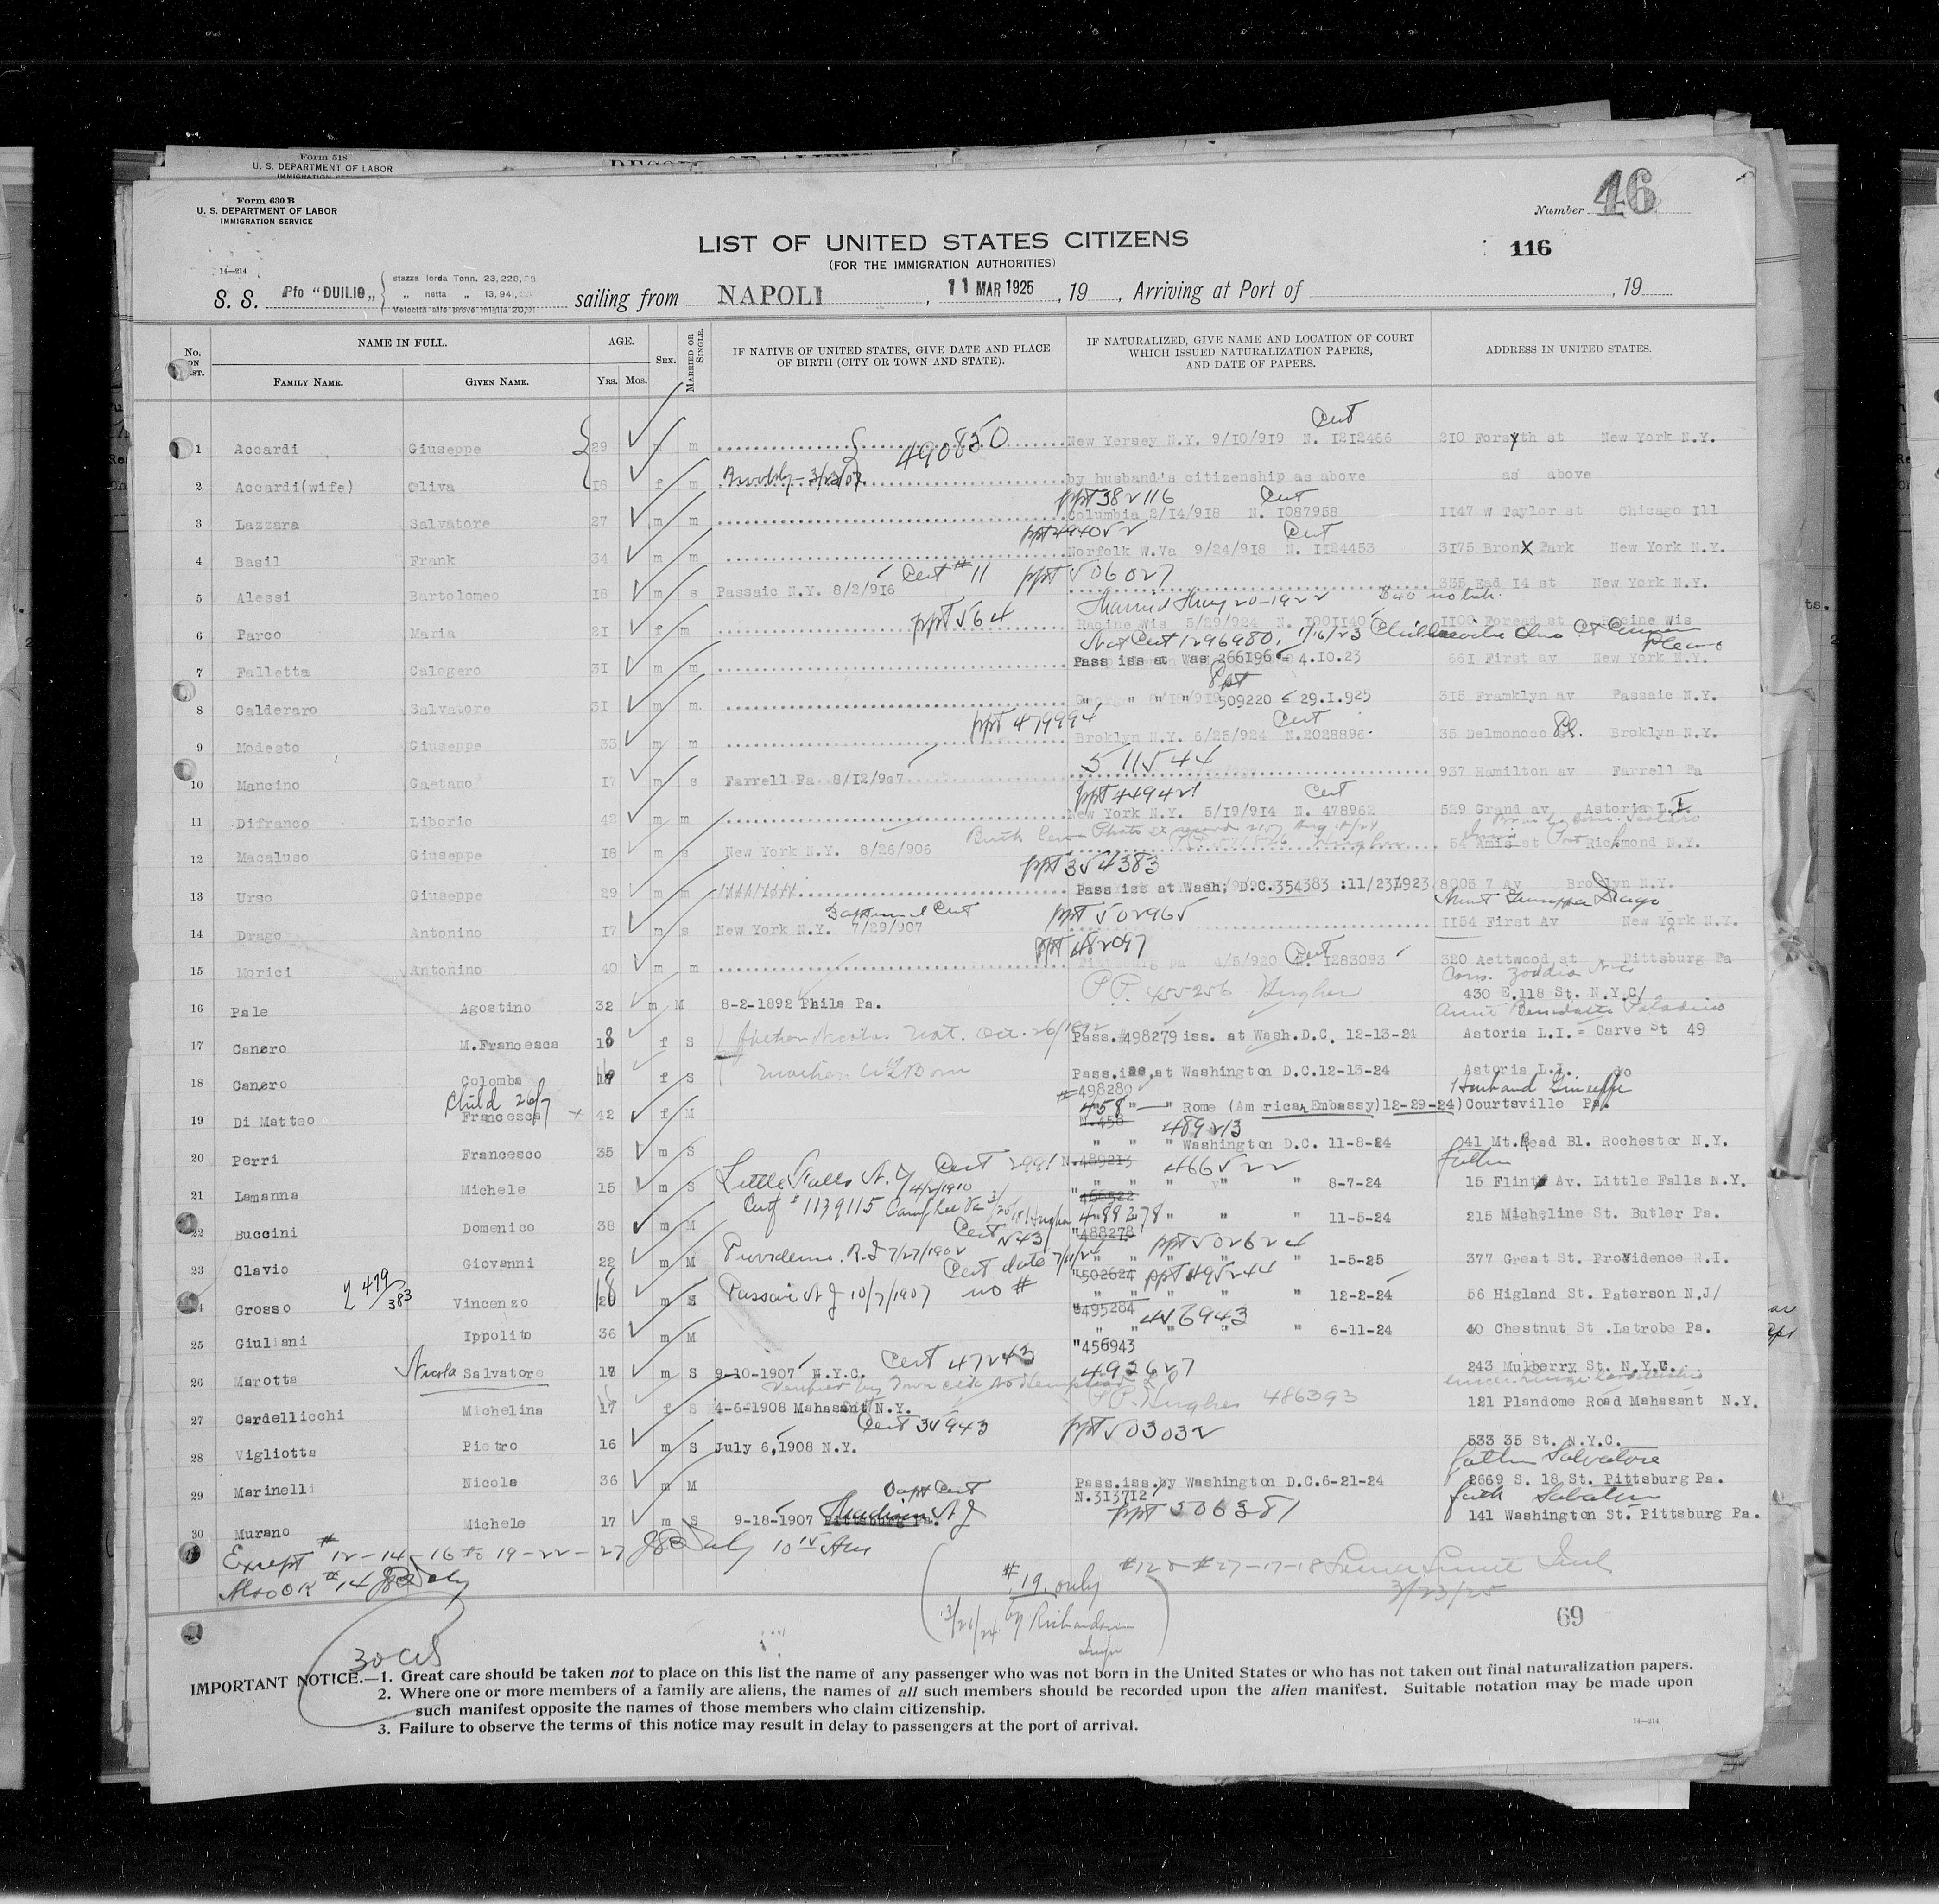 Form 518
U. S. DEPARTMENT OF LABOR
Form 630 B
U. S. DEPARTMENT OF LABOR
IMMIGRATION SERVICE
Number 46
116
LIST OF UNITED STATES CITIZENS
(FOR THE IMMIGRATION AUTHORITIES)
14—214
S. S. Pfo "DUILIO„ stazza lorda Tonn. 23,228,
„ netta „ 13,941,
Velocità alle prove miglia 20,
sailing from NAPOLI, 11 MAR 1925, 19 , Arriving at Port of , 19
No. ON LIST. NAME IN FULL. AGE. SEX. MARRIED OR SINGLE. IF NATIVE OF UNITED STATES, GIVE DATE AND PLACE OF BIRTH (CITY OR TOWN AND STATE). IF NATURALIZED, GIVE NAME AND LOCATION OF COURT WHICH ISSUED NATURALIZATION PAPERS, AND DATE OF PAPERS. ADDRESS IN UNITED STATES.
FAMILY NAME. GIVEN NAME. YRS. MOS.
1 Accardi Giuseppe 29 m m 490850 New Yersey N.Y. 9/10/919 N. 1212466 Cert 210 Forsyth st New York N.Y.
2 Accardi(wife) Oliva 18 f m by husband's citizenship as above as above
3 Lazzara Salvatore 27 m m ppt 382116 Cert Columbia 2/14/918 N. 1087958 1147 W Taylor st Chicago Ill
4 Basil Frank 34 m m ppt 494052 Cert Norfolk W.Va 9/24/918 N. 1124453 3175 Bronx Park New York N.Y.
5 Alessi Bartolomeo 18 m s Passaic N.Y. 8/2/916 Cert #11 ppt 506027 335 Ead 14 st New York N.Y.
6 Parco Maria 21 f m ppt 564 Racine Wis 5/29/924 N. 1001140 1100 Foread st Racine Wis
7 Falletta Calogero 31 m m Nat Cert 1296980, 1/16/23 Pass iss at Was 266196 = 4.10.23 661 First av New York N.Y.
8 Calderaro Salvatore 31 m m. Ppt " " " " 509220 29.1.925 315 Framklyn av Passaic N.Y.
9 Modesto Giuseppe 33 m m ppt 479994 Cert Broklyn N.Y. 6/25/924 N.2028896 35 Delmonoco Pl. Broklyn N.Y.
10 Mancino Gaetano 17 m s Farrell Pa 8/12/907 511544 937 Hamilton av Farrell Pa
11 Difranco Liborio 42 m m ppt 449421 Cert New York N.Y. 5/19/914 N. 478962 529 Grand av Astoria L.I.
12 Macaluso Giuseppe 18 m s New York N.Y. 8/26/906 54 Amis st Port Richmond N.Y.
13 Urso Giuseppe 29 m m ppt 354383 Pass iss at Wash, D.C. 354383 :11/23/1923 8005 7 Av Brooklyn N.Y.
14 Drago Antonino 17 m s Baptismal Cert New York N.Y. 7/29/907 ppt 502965 1154 First Av New York N.Y.
15 Morici Antonino 40 m m ppt 482097 Cert Pittsburg Pa 4/5/920 N. 1283093 320 Aettwood st Pittsburg Pa
16 Pale Agostino 32 m M 8-2-1892 Phila Pa. P.P. 455256 Hughes 430 E.118 St. N.Y.C/
17 Canero M.Francesca 18 f S father Nicola Nat. Oct. 26/1892 Pass.#498279 iss. at Wash.D.C. 12-13-24 Astoria L.I. = Carve St 49
18 Canero Colomba f S mother US Born Pass.iss.at Washington D.C.12-13-24 #498280 Astoria L.I. do
19 Di Matteo Francesca Child 26/7 42 f M 458 " Rome (American Embassy)12-29-24) N.458 Husband Giuseppe Courtsville Pa.
20 Perri Francesco 35 m S 489213 " " " Washington D.C. 11-8-24 N.489213 41 Mt.Read Bl. Rochester N.Y.
21 Lamanna Michele 15 m S Little Falls N.Y 4/2/1910 Cert 2991 466522 " " " " " 8-7-24 father 15 Flint Av. Little Falls N.Y.
22 Buccini Domenico 38 m M Cert # 1139115 Camp Lee Va 488278 " " " 11-5-24 "488278 215 Micheline St. Butler Pa.
23 Clavio Giovanni 22 m M Providence R.I 7/27/1902 ppt 502624 " " " " " 1-5-25 "502624 377 Great St. Providence R.I.
24 Grosso 479/383 Vincenzo 18 m S Passaic N J 10/7/1907 Cert date 7/11/24 no # ppt 495244 " " " " " 12-2-24 "495284 56 Higland St. Paterson N.J/
25 Giuliani Ippolito 36 m M 456943 " " " " " 6-11-24 "456943 40 Chestnut St .Latrobe Pa.
26 Marotta Nicola Salvatore 17 m S 9-10-1907 N.Y.C. Cert 47243 493627 243 Mulberry St. N.Y.C.
27 Cardellicchi Michelina 17 f S 4-6-1908 Mahasant N.Y. P.P. Hughes 486393 121 Plandome Road Mahasant N.Y.
28 Vigliotta Pietro 16 m S July 6,1908 N.Y. Cert 35943 ppt 503032 533 35 St. N.Y.C.
29 Marinelli Nicola 36 m M Pass.iss.by Washington D.C.6-21-24 N.313712 father Salvatore 2669 S. 18 St. Pittsburg Pa.
30 Murano Michele 17 m S 9-18-1907 Pittsburg Pa. Madison N J Bapt Cert ppt 506381 141 Washington St. Pittsburg Pa.
Except # 12-14-16 to 19-22-27 JB Daly 10 15 Am
Also OK #14 JB Daly
#19 only
by Richardson
3/23/25
69
30 CIS
IMPORTANT NOTICE.—1. Great care should be taken not to place on this list the name of any passenger who was not born in the United States or who has not taken out final naturalization papers.
2. Where one or more members of a family are aliens, the names of all such members should be recorded upon the alien manifest. Suitable notation may be made upon
such manifest opposite the names of those members who claim citizenship.
3. Failure to observe the terms of this notice may result in delay to passengers at the port of arrival.
14—214